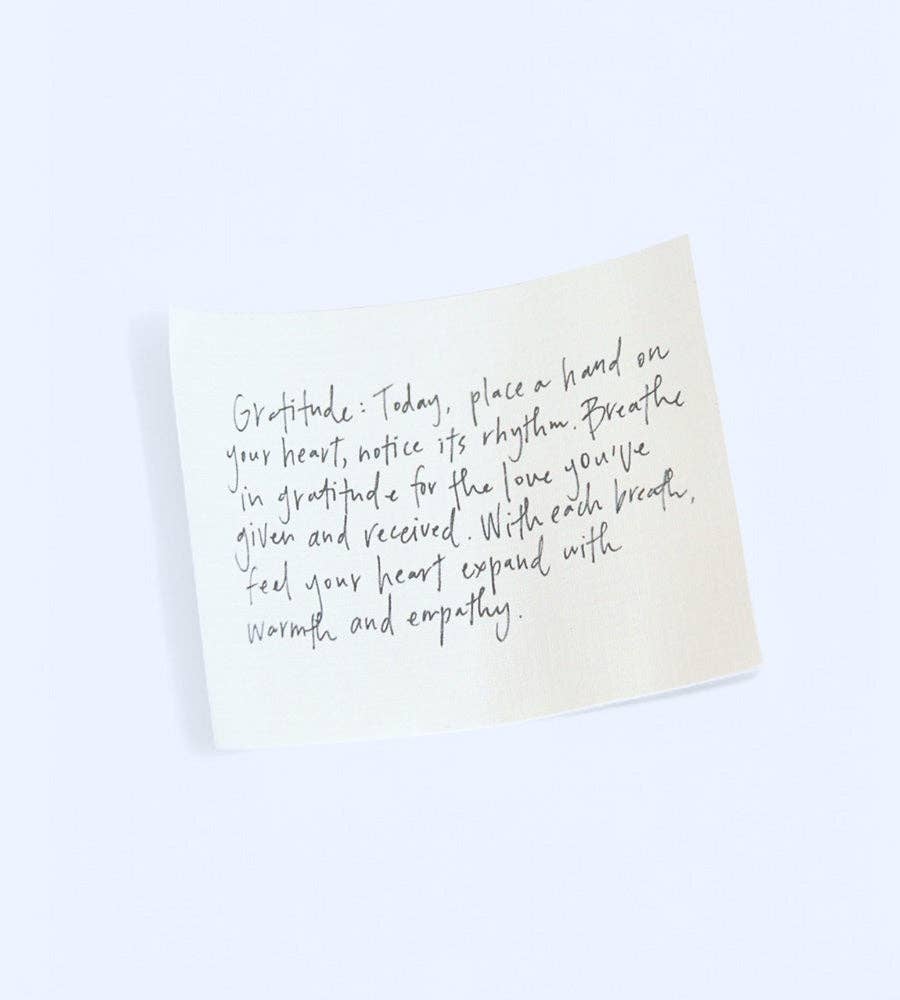 Gratitude: Today, place a hand on
your heart, notice its rhythm. Breathe
in gratitude for the love you've
given and received. With each breath,
feel your heart expand with
warmth and empathy.